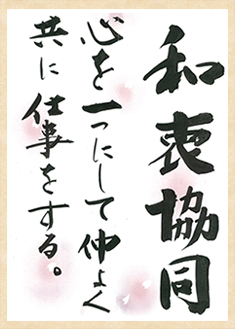 和衷協同
心を一つにして仲よく
共に仕事をする。